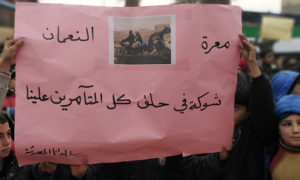 معرة النعمان
شوكة في حلق كل المتآمرين علينا